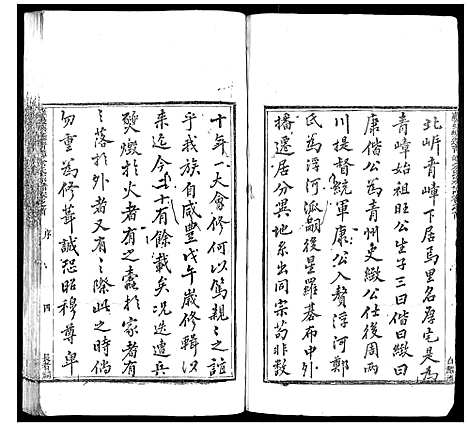 北岍青嶂下居焉里名康宅是為
青嶂始祖旺公生子三曰偕曰緻曰
康偕公為青州史緻公任後周兩
川提督統軍康公入贅浮河鄭
氏為浮河派嗣後星羅棊布中外
播遷居分異地系出同宗苟非數
十年一大會修何以篤親〻之誼
乎我族自咸豐戊午歲修輯以
來迄今十有餘載矣況迭遭兵
燹燬於火者有之蠹於家者有
之落於外者又有之際此之時倘
勿重為修葺誠恐昭穆尊卑
序
四
長春祠